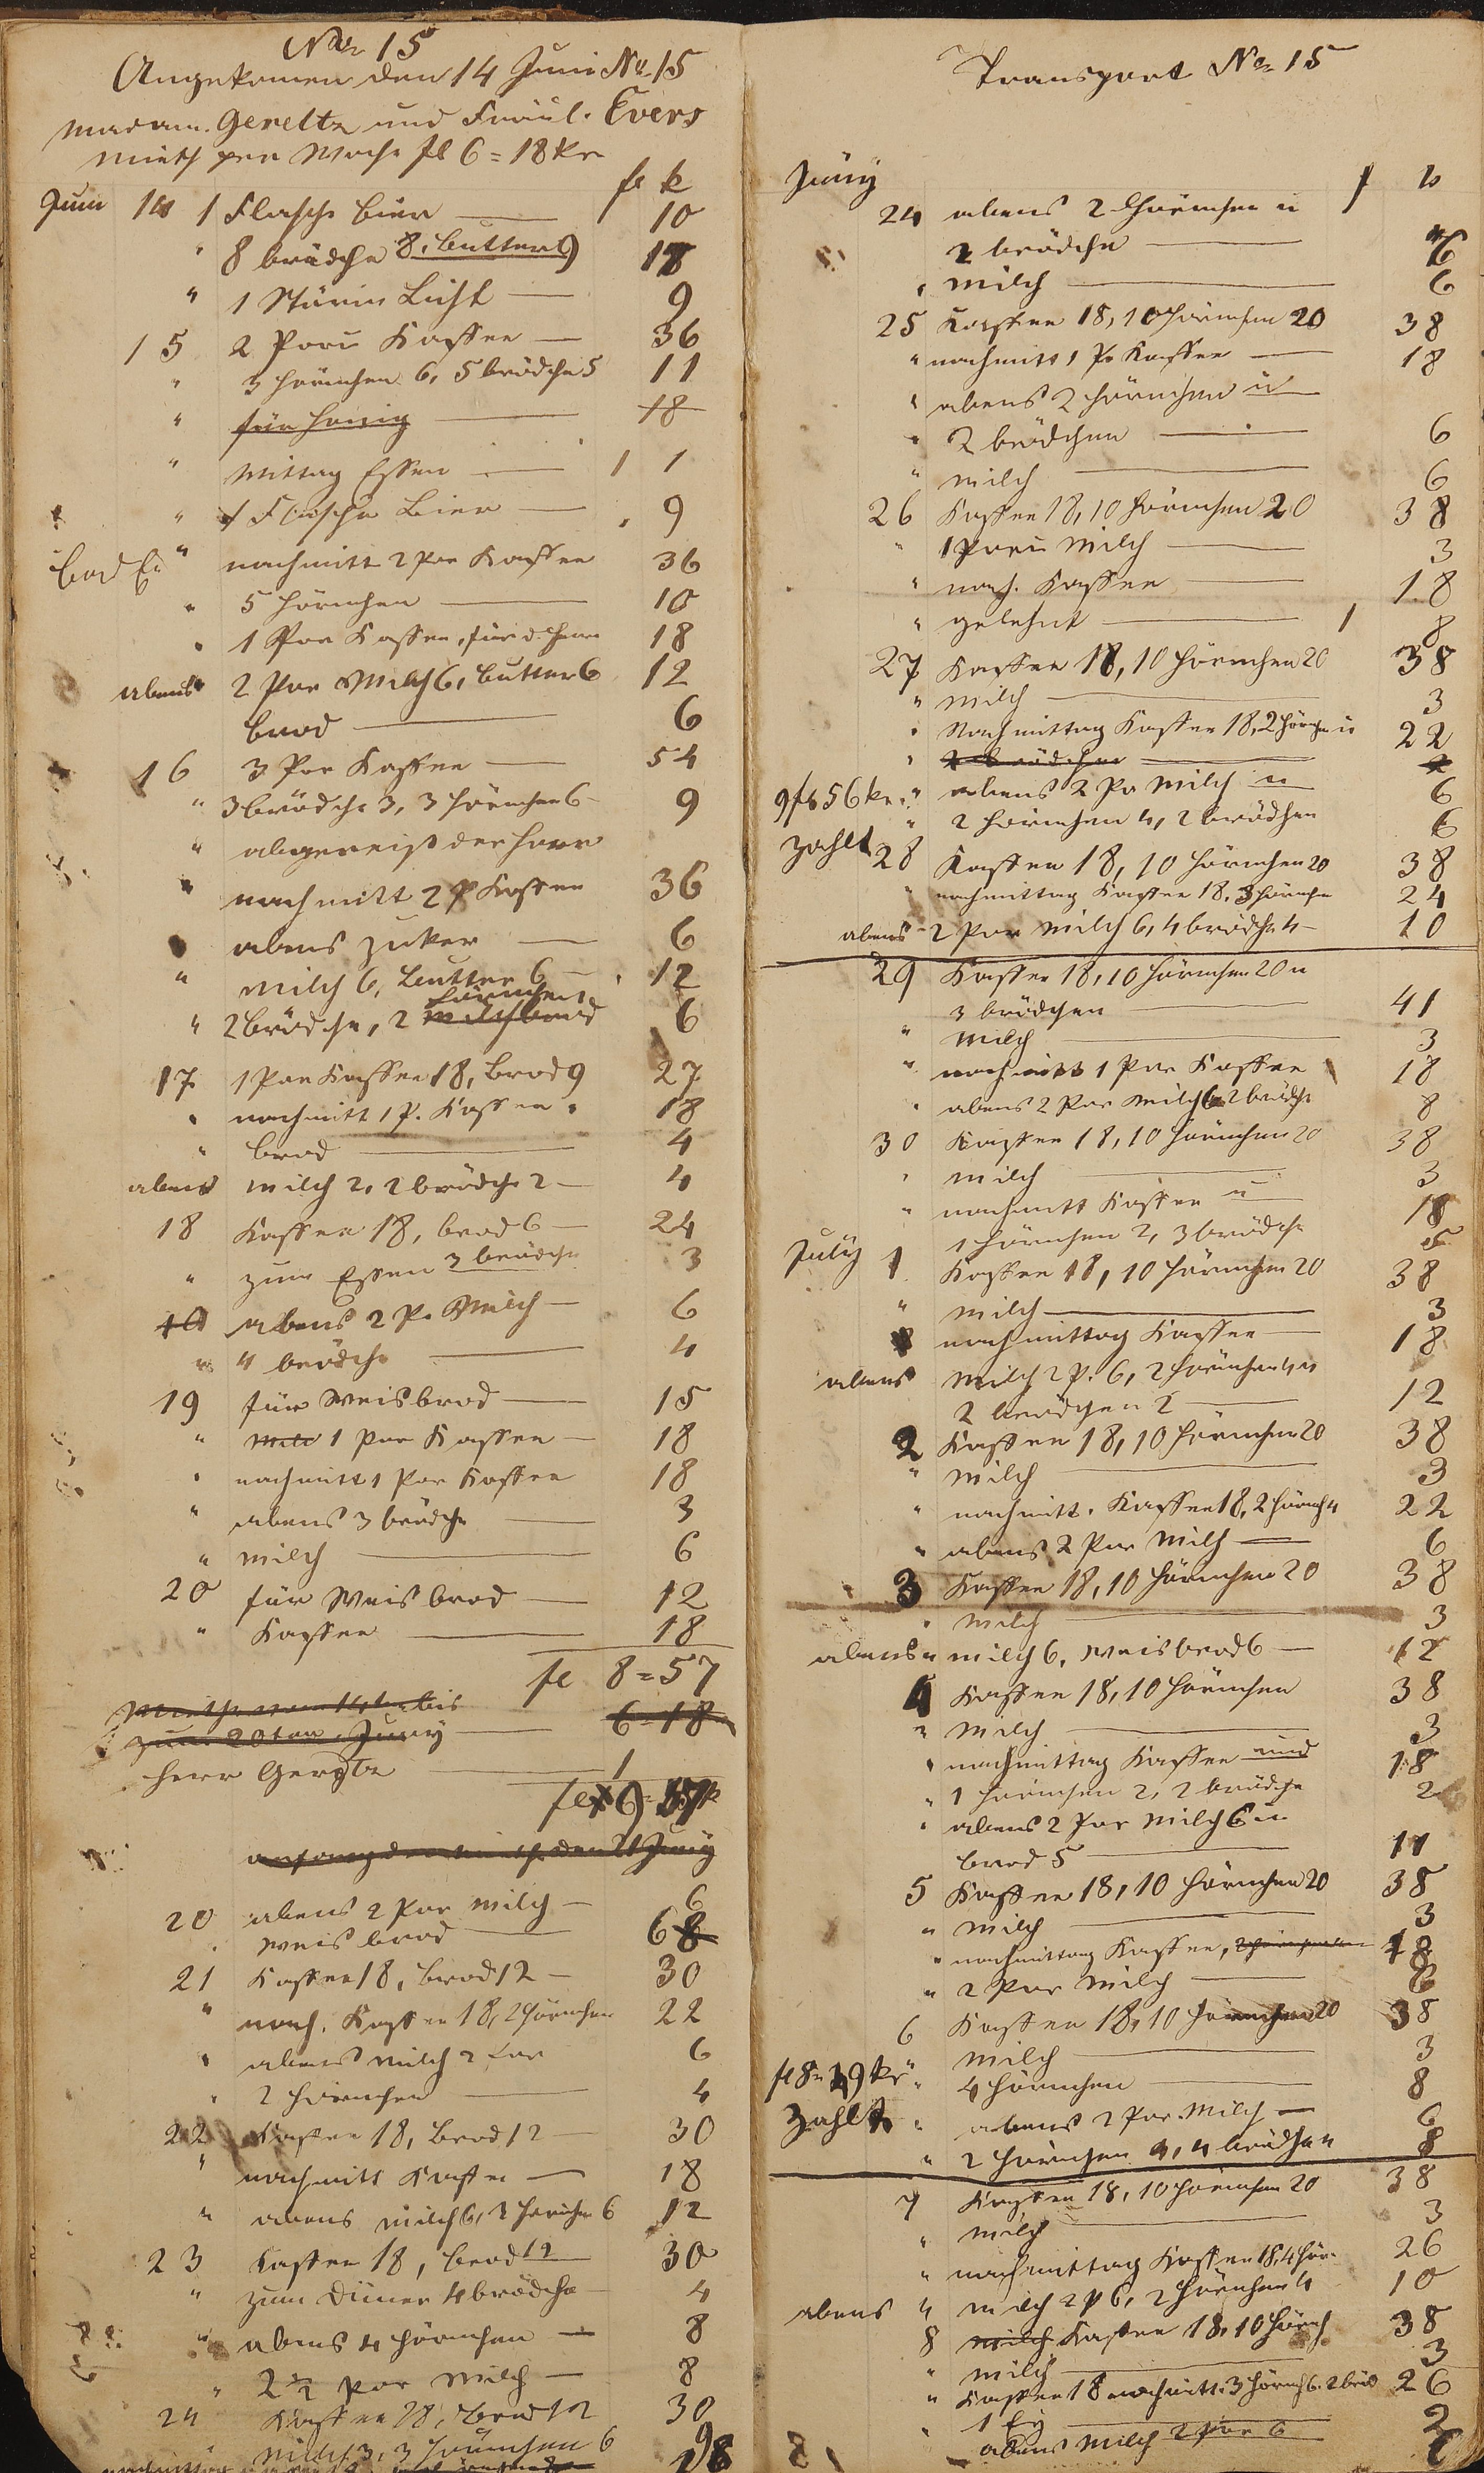 No 15
Angekomen den 14 Juni No 15
Madam. Gereltz und Fräul. Evers
Mieth per Woche fl 6 = 18 kr
fl k
Juni 14 1 Flasche Bier — 10
" 8 brödche 8, Butter 9 17
" 1 Stürin Licht — 9
15 2 Por Kaffee — 36
" 3 hörnchen 6, 5 brödche 5 11
" für honig — 18
" Mittag Essen — 1 1
" 1 Flasche Bier — 9
" nachmitt 2 Por Kaffee 36
" 5 hörnchen — 10
" 1 Por Kaffee, für d. herrn 18
abens 2 Por Milch 6, Butter 6 12
brod — 6
16 3 Por Kaffee — 54
" 3 brödche 3, 3 hörnchen 6 9
" abgereist der herr
" nachmitt 2 P Kaffee 36
" abens Zuker — 6
" Milch 6, Butter 6 — 12
hörnchen
" 2 brödche, 2 milchbrod 6
17 1 Por Kaffee 18, Brod 9 27
" nachmitt 1 P. Kaffee 18
" brod — 4
abens Milch 2, 2 brödche 2 — 4
18 Kaffee 18, brod 6 — 24
" zum Essen 3 brödche 3
abens 2 Po Milch — 6
" 4 brödche — 4
19 für Weisbrod — 15
" 1 Por Kaffee — 18
" nachmitt 1 Por Kaffee 18
" abens 3 brödche — 3
" Milch — 6
20 für Weisbrod — 12
" Kaffee — 18
fl 8 = 57
Miethe vom 14ten bis
zum 20ten Juny — 6 = 18
Herr — 1
fl 9 = 57 k
anfang der mieth den 21 Juny
20 abens 2 Por Milch — 6
" Weisbrod — 6 8
21 Kaffee 18, brod 12 — 30
" nach. Kaffee 18, 2 hörnchen 22
" abens Milch 2 Por 6
" 2 hörnchen — 4
22 Kaffee 18, Brod 12 — 30
" nachmitt Kaffee — 18
" abens Milch 6, 3 hörnchen 6 12
23 Kaffee 18, brod 12 30
" zum Dimer 4 brödche — 4
" abens 4 hörnchen — 8
" 2 1/2 Por Milch — 8
24 Kaffee 18, brod 12 30
Milch 3, 3 hörnchen 6 9
Transport No 15
Juny f k
24 abens 2 hörnchen u
2 brödche — 6
" Milch — 6
25 Kaffee 18, 10 hörnchen 20 38
" nachmitt 1 Po Kaffee — 18
" abens 2 hörnchen u
" 2 brödchen — 6
" Milch — 6
26 Kaffee 18, 10 hörnchen 20 38
" 1 Por Milch — 3
" nach. Kaffee — 18
" gelehnt — 1 8
27 Kaffee 18, 10 hörnchen 20 38
" Milch — 3
" Nachmittag Kaffee 18, 2 hörnche u 22
" 2 brödchen — 2
9 fl 56 kr " abens 2 Po Milch u 6
" 2 hörnchen 4, 2 brödchen 6
Zahlt
28 Kaffee 18, 10 hörnchen 20 38
" nachmittag Kaffee 18, 3 hörnche 24
abens 2 Por Milch 6, 4 brödche 4 — 10
29 Kaffee 18, 10 hörnchen 20 u
3 brödchen — 41
" Milch — 3
" nachmitt 1 Por Kaffee 18
" abens 2 Por Milch 6 2 brödche 8
30 Kaffee 18, 10 hörnchen 20 38
" Milch — 3
" nachmitt Kaffee u 18
1 hörnchen 2, 3 brödche 5
July 1 Kaffee 18, 10 hörnchen 20 38
" Milch — 3
" nachmittag Kaffee — 18
abens Milch 2 P. 6, 2 hörnchen 4 u
2 brödchen 2 — 12
2 Kaffee 18, 10 hörnchen 20 38
" Milch — 3
" nachmitt. Kaffee 18, 2 hörnch 4 22
" abens 2 Por Milch — 6
3 Kaffee 18, 10 hörnchen 20 38
" Milch — 3
abens " Milch 6, Weisbrod 6 — 12
4 Kaffee 18, 10 hörnchen 38
" Milch — 3
" nachmittag Kaffee und 18
" 1 hörnchen 2, 2 brödche 2
" abens 2 Por Milch 6 u
brod 5 — 11
5 Kaffee 18, 10 hörnchen 20 38
" Milch — 3
" nachmittag Kaffee, 18
" 2 Por Milch — 6
6 Kaffee 18, 10 hörnchen 20 38
" Milch — 3
fl 8 = 49 kr " 4 hörnchen — 8
Zahlt " abens 2 Por Milch — 6
" 2 hörnchen 4, 4 brödche 4 8
7 Kaffee 18, 10 hörnchen 20 38
" Milch — 3
" nachmittag Kaffee 18, 4 hör. 26
abens " Milch 2 P 6, 2 hörnchen 4 10
8 Milch Kaffee 18, 10 hörnch 38
" Milch — 3
" Kaffee 18 nachmitt. 3 hörnch 6, 2 bröd 26
" 1 Ey — 2
abens Milch 2 Por 6 6